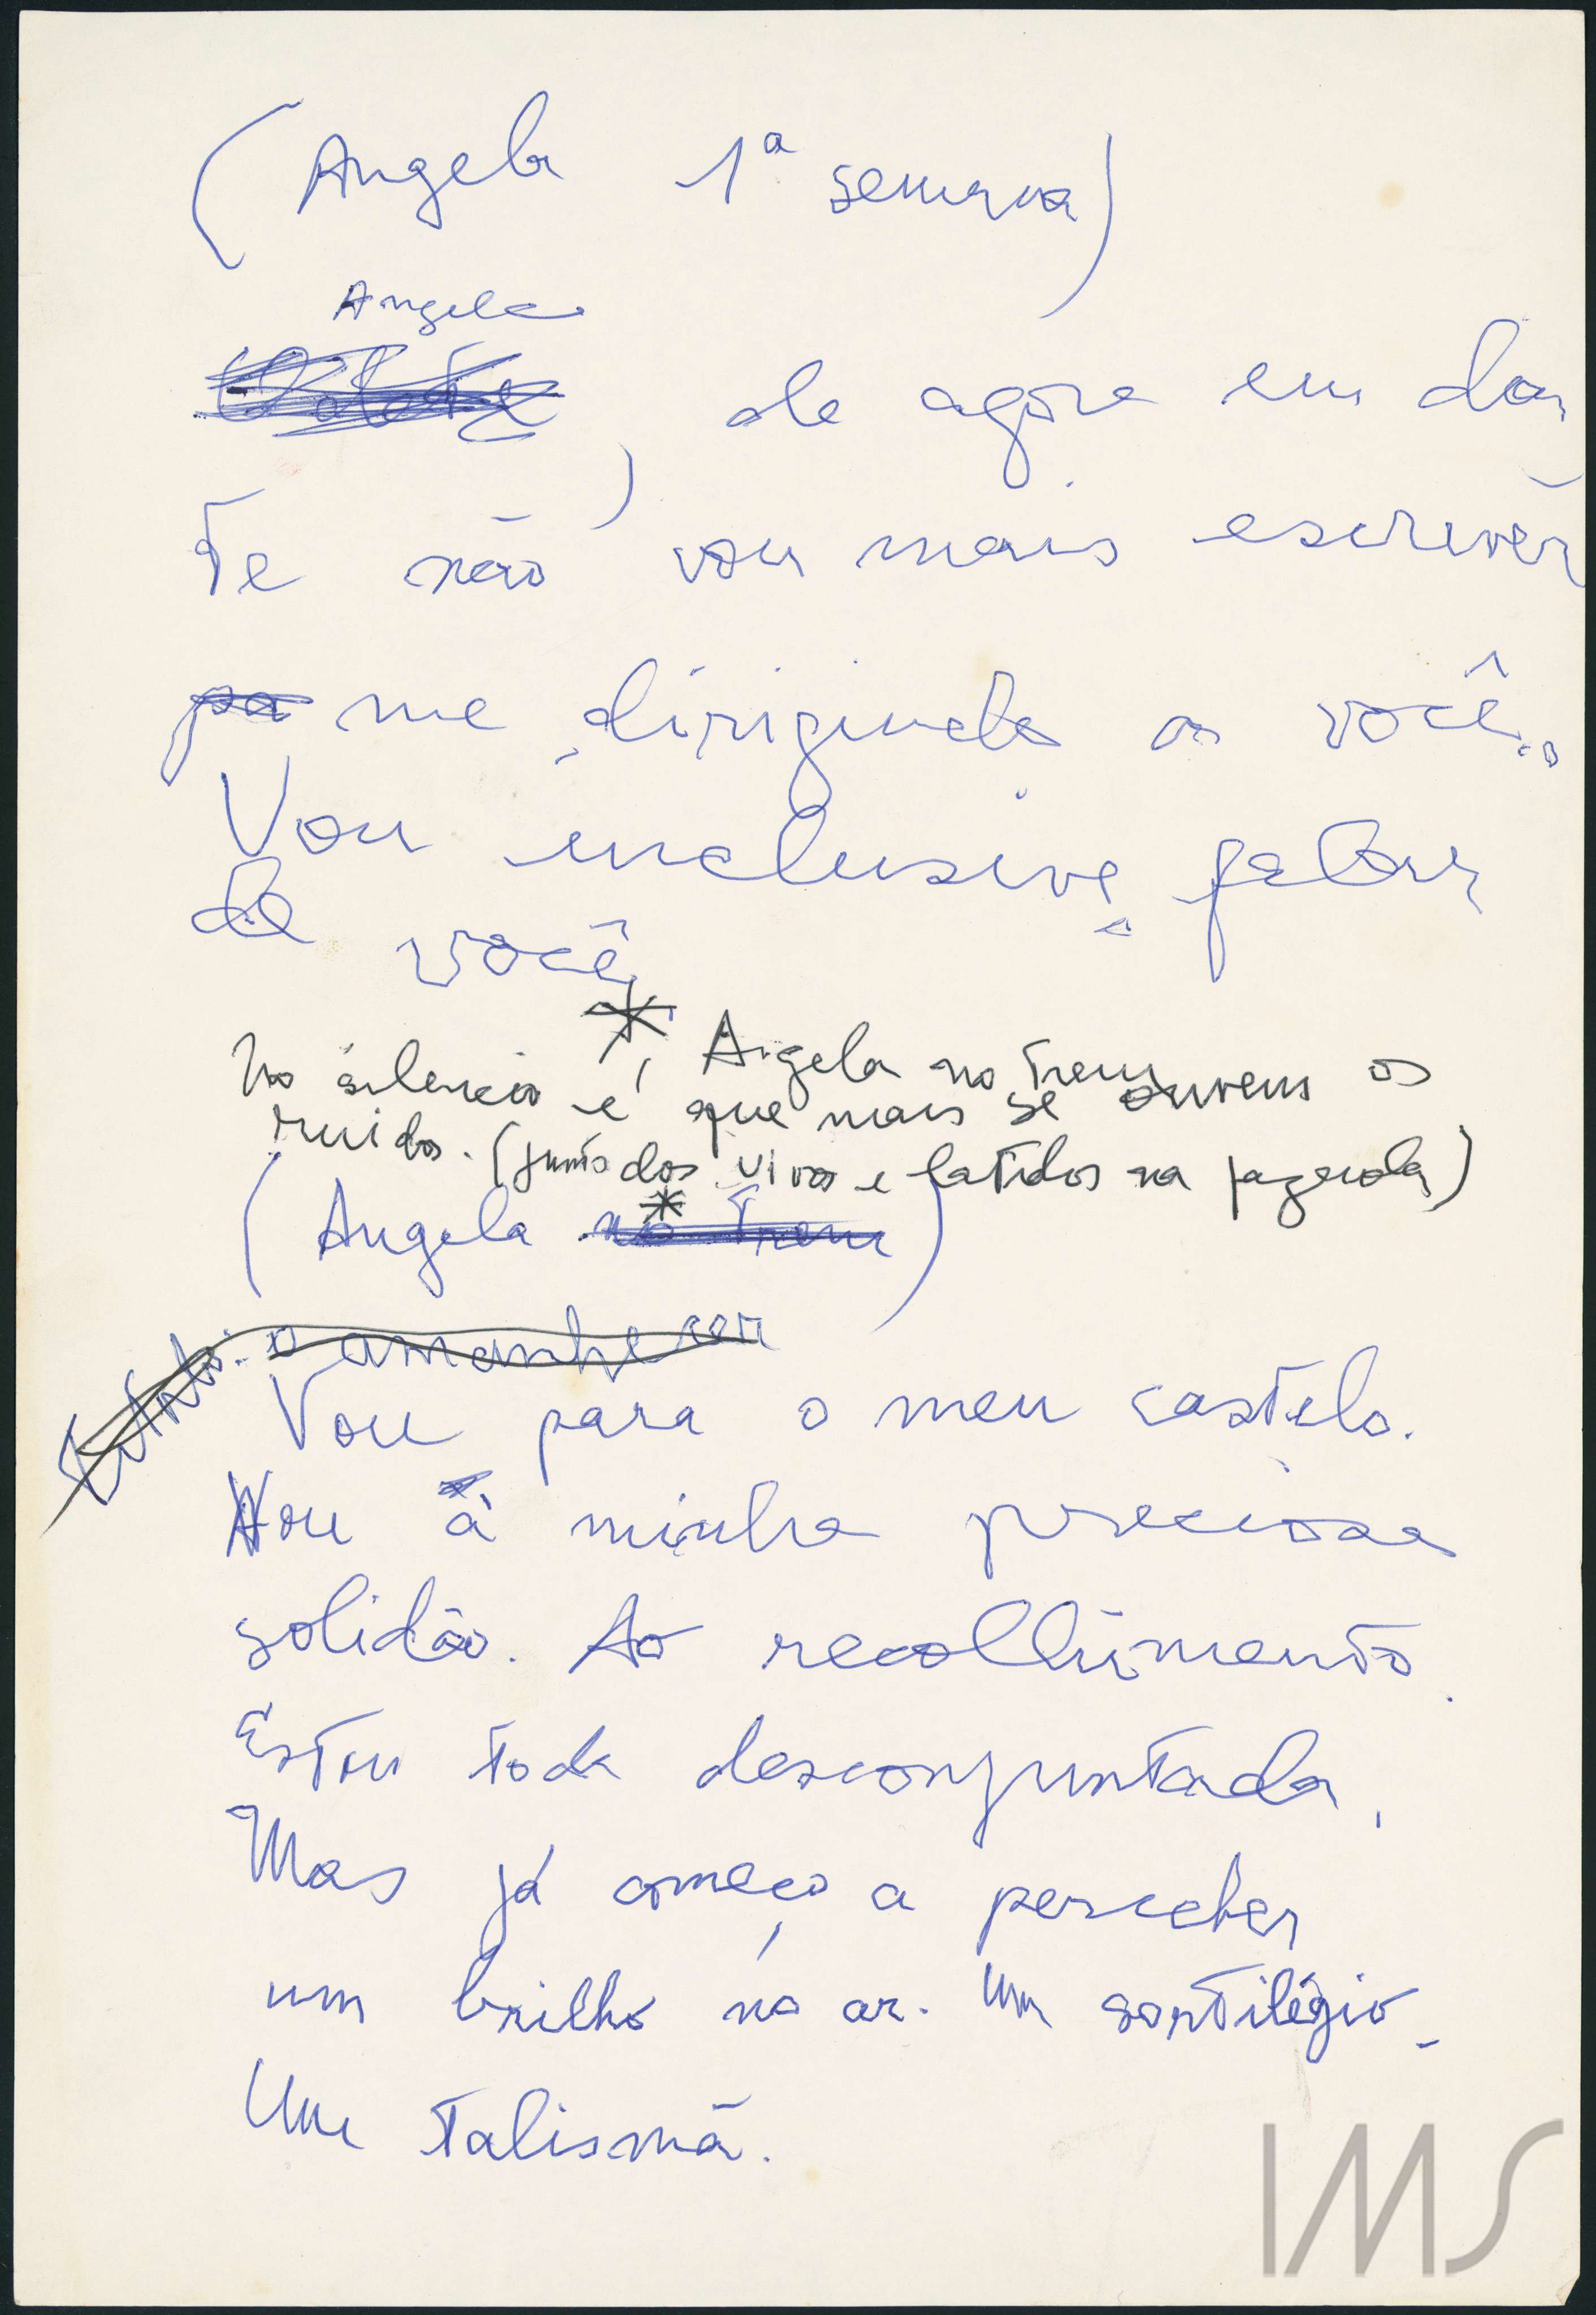 (Angela 1ª semana)
Angela
, de agora em dan
te não vou mais escrever
pa me dirigindo a você.
Vou inclusive falar
de você
* Angela no Trem
No silencio é que mais se ouvem os
ruidos. (junto dos vivos e latidos na fazenda)
*
(Angela no Trem)
o amanhecer
Vou para o meu castelo.
Vou à minha preciosa
solidão. Ao recolhimento.
Estou toda desconjuntada.
Mas já começo a perceber
um brilho no ar. Um sortilégio.
Um talismã.
IMS